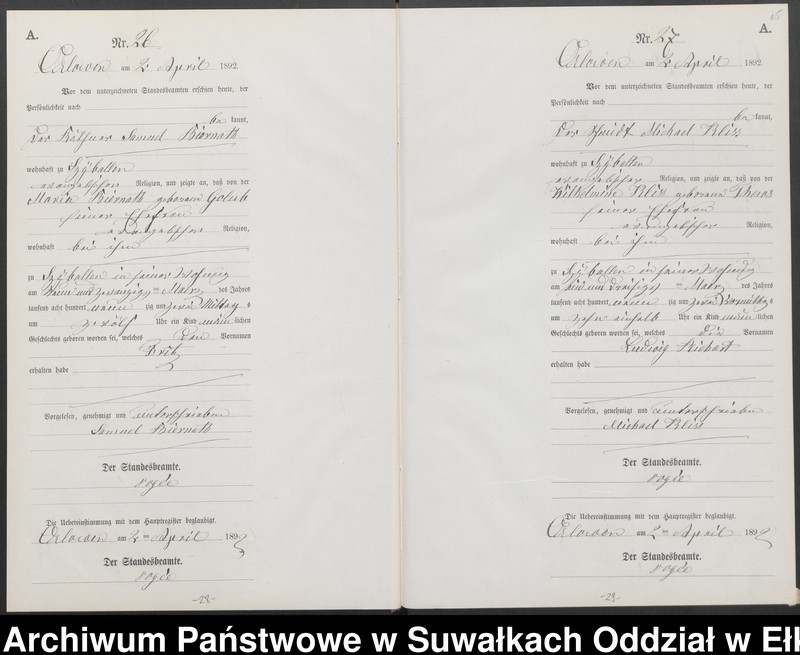 A.
Nr. 26
Orlowen am 2 April 1892.
Vor dem unterzeichneten Standesbeamten erschien heute, der
Persönlichkeit nach
be kannt,
Der Käthner Samuel Biernath
wohnhaft zu Szÿballen
evangelischer Religion, und zeigte an, daß von der
Maria Biernath geborene Golub
seiner Ehefrau
evangelischer Religion,
wohnhaft bei ihm
zu Szÿballen in seiner Wohnung
am neun und zwanzigsten März des Jahres
tausend acht hundert neun zig und zwei Mittag s
um zwölf Uhr ein Kind männ lichen
Geschlechts geboren worden sei, welches den Vornamen
Fritz
erhalten habe
Vorgelesen, genehmigt und unterschrieben
Samuel Biernath
Der Standesbeamte.
Die Uebereinstimmung mit dem Hauptregister beglaubigt.
Orlowen am 2ten April 1892
Der Standesbeamte.
-28-
A.
Nr. 27
Orlowen am 2 April 1892
Vor dem unterzeichneten Standesbeamten erschien heute, der
Persönlichkeit nach
be kannt,
Der Schmidt Michael Kliss
wohnhaft zu Szÿballen
evangelischer Religion, und zeigte an, daß von der
Wilhelmine Kliss geborene
seiner Ehefrau
evangelischer Religion,
wohnhaft bei ihm
zu Szÿballen in seiner Wohnung
am ein und dreißigsten März des Jahres
tausend acht hundert neun zig und zwei Vormittag s
um zehn einhalb Uhr ein Kind männ lichen
Geschlechts geboren worden sei, welches die Vornamen
Ludwig Richart
erhalten habe
Vorgelesen, genehmigt und unterschrieben
Michael Kliss
Der Standesbeamte.
Die Uebereinstimmung mit dem Hauptregister beglaubigt.
Orlowen am 2ten April 1892
Der Standesbeamte.
-29-
Archiwum Państwowe w Suwałkach Oddział w Ełk